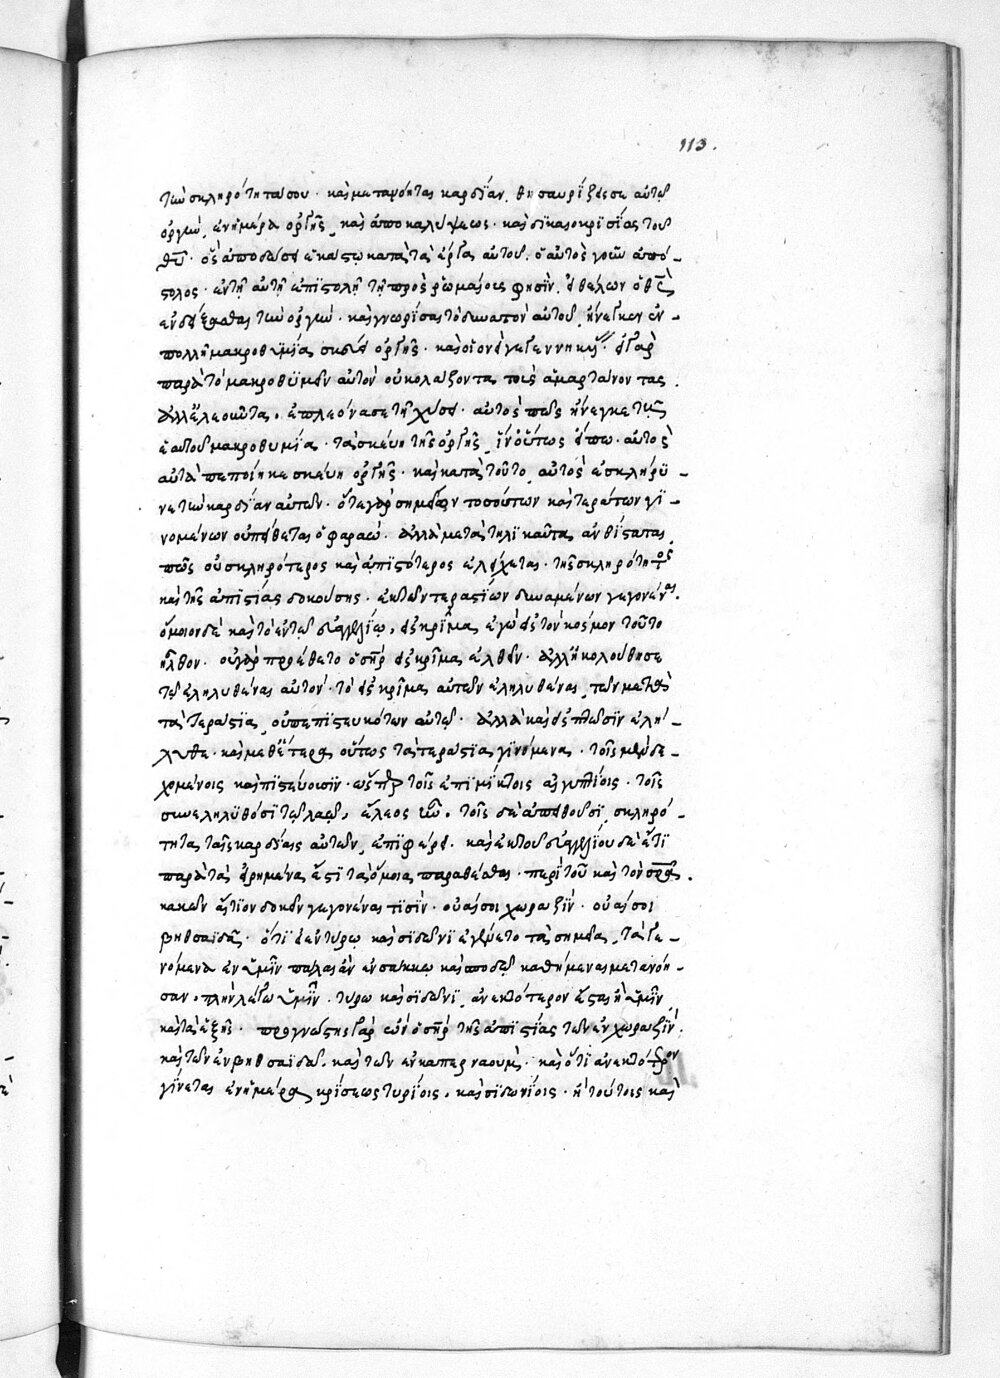 113.
τὴν σκληρότητά σου· καὶ μεταψόητας καρδΐαν, θησαυρίζεις σεαυτῷ
ὀργὴν, ἐν ἡμέρα ὀργῆς, καὶ ἀποκαλύψεως· καὶ δικαιοκρισίας τοῦ
θῦ· ὃς ἀποδώσει ἑκάστῳ κατὰ τὰ ἔργα αὐτοῦ. ὁ αὐτὸς γοῦν ἀπό-
στολος· ἐν τῇ αὐτῇ ἐπιστολῇ τῇ πρὸς ῥωμαίοις φησὶν, εἰ θέλων ὁ θς̄
ἐνδείξασθαι τὴν ὀργὴν· καὶ γνωρίσαι τὸ δυνατὸν αὐτοῦ, ἤνεγκεν ἐν -
πολλῇ μακροθυμΐα σκεύη ὀργῆς· καὶ εἰ γὰρ
παρὰ τὸ μακροθϋμεῖν αὐτὸν οὐ κολάζοντα τοὺς ἁμαρτάνοντας.
ἀλλ' ἐλεοῦντα, ἐπλεόνασε τῇ χύσει· αὐτός πως ἤνεγκε τῆς
ἑαυτοῦ μακροθυμΐα· τὰ σκεύη τῆς ὀργῆς, ἵν' οὕτως εἴπω· αὐτὸς
αὐτὰ πεποίηκε σκεύη ὀργῆς· καὶ κατὰ τοῦτο, αὐτὸς ἐσκλήρϋ -
νε τὴν καρδΐαν αὐτῶν· ὅτε γὰρ σημείων τοσούτων καὶ τεράτων γΐ -
νομένων οὐ πείθεται ὁ φαραώ· ἀλλὰ μετὰ τηλϊκαῦτα ἀνθΐσταται,
πῶς οὐ σκληρότερος καὶ ἀπιστότερος ἐλέγχεται· τῆς σκληρότητος
καὶ τῆς ἀπιστίας δοκούσης· ἐκ τῶν τεραστΐων δυναμένων γεγονέναι.
ὅμοιον δὲ καὶ τὸ ἐν τῷ εὐαγγελΐῳ, εἰς κρῖμα, ἐγὼ εἰς τὸν κόσμον τοῦτο
ἦλθον· οὐ γὰρ προέθετο ὁ σηρ εἰς κρῖμα ἐλθεῖν· ἀλλ' ἠκολούθησε
τῷ ἐληλυθέναι αὐτὸν· τὸ εἰς κρῖμα αὐτῶν ἐληλυθέναι, τῶν μετὰ
τὰ τεράστια, οὐ πεπιστευκότων αὐτῷ· ἀλλὰ καὶ εἰς πτῶσιν ἐλή -
λυθε· καὶ μεθ' ἕτερα οὕτως τὰ τεράστια γϊνόμενα, τοῖς μὲν δε -
χομένοις καὶ πϊστεύουσϊν· ὥσπερ τοῖς ἐπϊμΐκτοις αἰγυπτΐοις· τοῖς
συνεληλϋθόσι τῷ λαῷ, ἔλεος ἦν· τοῖς δὲ ἀπειθοῦσϊ, σκληρό -
τητα ταῖς καρδΐαις αὐτῶν, ἐπϊφέρει· καὶ ἐκ τοῦ εὐαγγελΐου δὲ ἔτϊ
παρὰ τὰ εἰρημένα ἔστϊ τὰ ὅμοια παραθέσθαι· περὶ τοῦ καὶ τὸν σρα.
κακῶν αἴτϊον δοκεῖν γεγονέναι τϊσΐν· οὐαίσοι χωραζΐν· οὐαίσοι
βηθσαϊδᾶ· ὅτϊ εἰ ἐν τύρῳ καὶ σϊδῶνϊ ἐγένετο τὰ σημεῖα, τὰ γε -
νόμενα ἐν ὑμῖν πάλαι ἂν ἐν σάκκῳ καὶ σποδῷ καθήμεναι μετανόη -
σαν· πλὴν λέγω ὑμῖν· τύρω καὶ σϊδῶνϊ, ἀνεκτότερον ἔσται ἢ ὑμῖν,
καὶ τὰ ἑξῆς· προγνώστης γὰρ ὢν ὁ σηρ τῆς ἀπιστίας τῶν ἐν χωραζΐν·
καὶ τῶν ἐν βηθσαϊδᾶ, καὶ τῶν ἐν καπερναούμ· καὶ ὅτϊ ἀνεκτότερον
γίνεται ἐν ἡμέρᾳ κρΐσεως τυρΐοις, καὶ σϊδωνΐοις· ἢ τούτοις καὶ